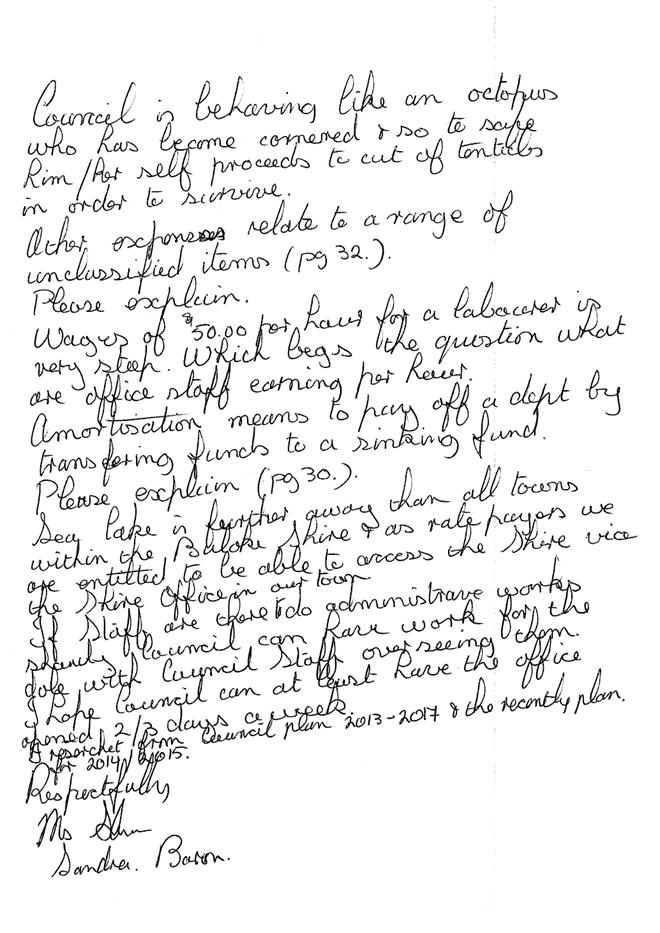 Council is behaving like an octopus
who has become cornered & so to safe
him/her self proceeds to cut of tenticls
in order to survive.
Other expenses relate to a range of
unclassified items (pg 32.).
Please explain.
Wages of $50.00 per hour for a labourer is
very steep. Which begs the question what
are office staff earning per hour.
Amortisation means to pay off a dept by
transfering funds to a sinking fund.
Please explain (pg30.).
Sea lake is further away than all towns
within the Buloke Shire & as rate payers we
are entitled to be able to access the Shire vice
the Shire Office in our town
If Staff are there to do administrave works
surely Council can have work for the
dole with Council Staff overseeing them.
I hope Council can at least have the office
opened 2/3 days a week.
from Council plan 2013-2017 & the recently plan.
for 2014/2015.
Respectfully
Ms
Sandra. Baron.